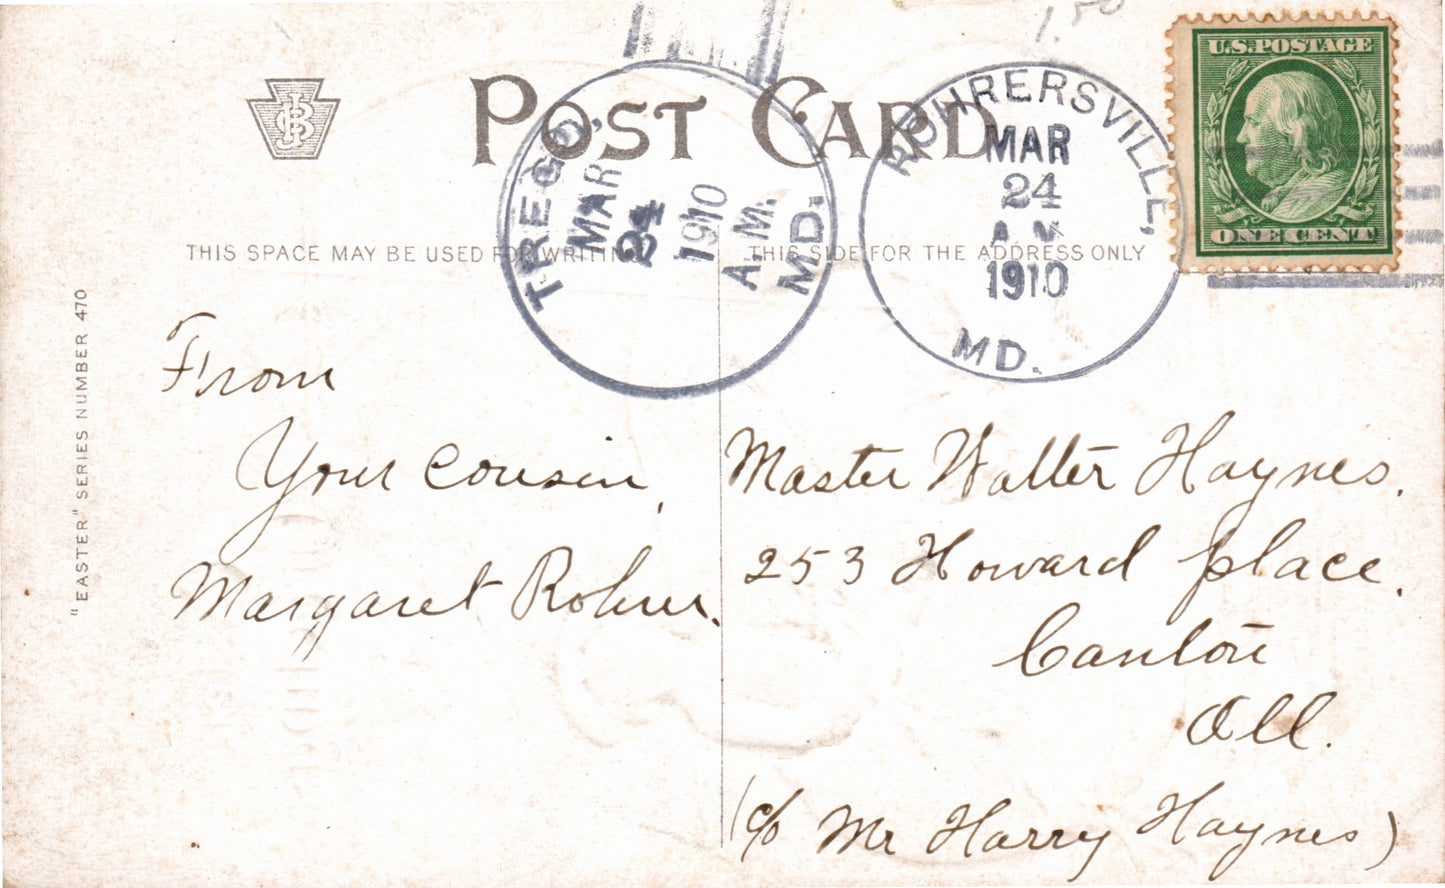 1.50
POST CARD
U.S. POSTAGE
ONE CENT
TREGO,
MAR
24
1910
A.M.
MD.
ROHRERSVILLE,
MAR
24
A M
1910
MD.
THIS SPACE MAY BE USED FOR WRITING
THIS SIDE FOR THE ADDRESS ONLY
"EASTER" SERIES NUMBER 470
From
Your cousin,
Margaret Rohrer.
Master Walter Haynes.
253 Howard place.
Canton
Ill.
(c/o Mr Harry Haynes)